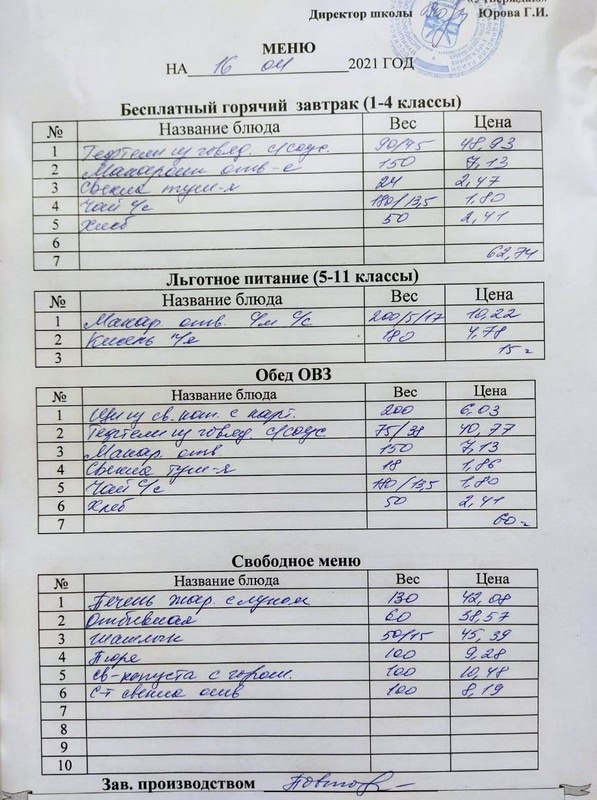 «Утверждаю»
Директор школы Юрова Г.И.
МЕНЮ
НА 16 04 2021 ГОД
Бесплатный горячий завтрак (1-4 классы)
№ Название блюда Вес Цена
1 Тефтели из говяд. с/соус. 90/45 48,93
2 Макароны отв-е 150 7,13
3 Свекла туш-я 24 2,47
4 Чай с/с 180/13,5 1,80
5 Хлеб 50 2,41
6
7 62,74
Льготное питание (5-11 классы)
№ Название блюда Вес Цена
1 Макар. отв. с/м с/с 200/5/17 10,22
2 Кисель 180 4,78
3 15
Обед ОВЗ
№ Название блюда Вес Цена
1 Щи из св. кап. с карт. 200 6,03
2 Тефтели из говяд. с/соус 75/38 40,77
3 Макар. отв 150 7,13
4 Свекла туш-я 18 1,86
5 Чай с/с 180/13,5 1,80
6 Хлеб 50 2,41
7 60
Свободное меню
№ Название блюда Вес Цена
1 Печень жар. с луком 130 42,08
2 Отбивная 60 58,57
3 Шашлык 50/45 45,39
4 Пюре 100 9,28
5 св-капуста с горош. 100 10,48
6 С-т свекла отв 100 8,19
7
8
9
10
Зав. производством